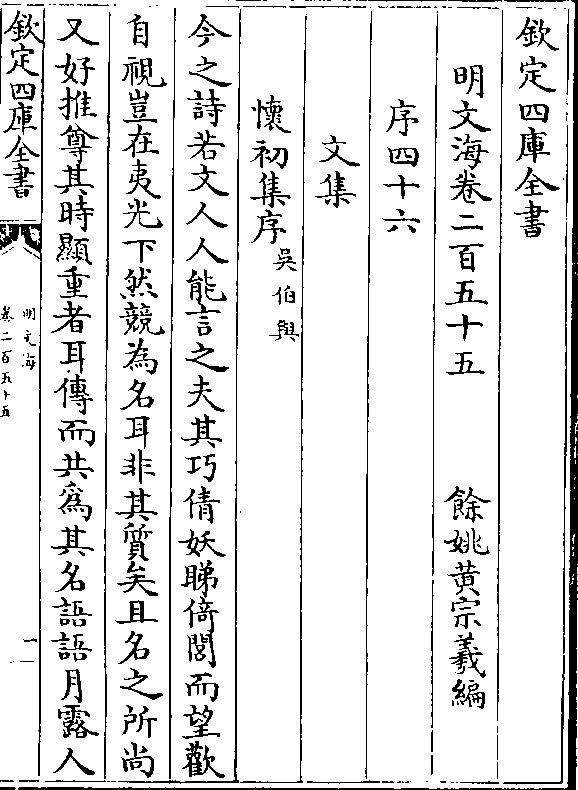 欽定四庫全書
明文海卷二百五十五
餘姚黄宗羲編
序四十六
文集
懷初集序
吳伯與
今之詩若文人人能言之夫其巧倩妖睇倚閭而望歡
自視豈在夷光下然競為名耳非其質矣且名之所尚
又好推尊其時顯重者耳傳而共為其名語語月露人
欽定四庫全書
明文海
卷二百五十五
一